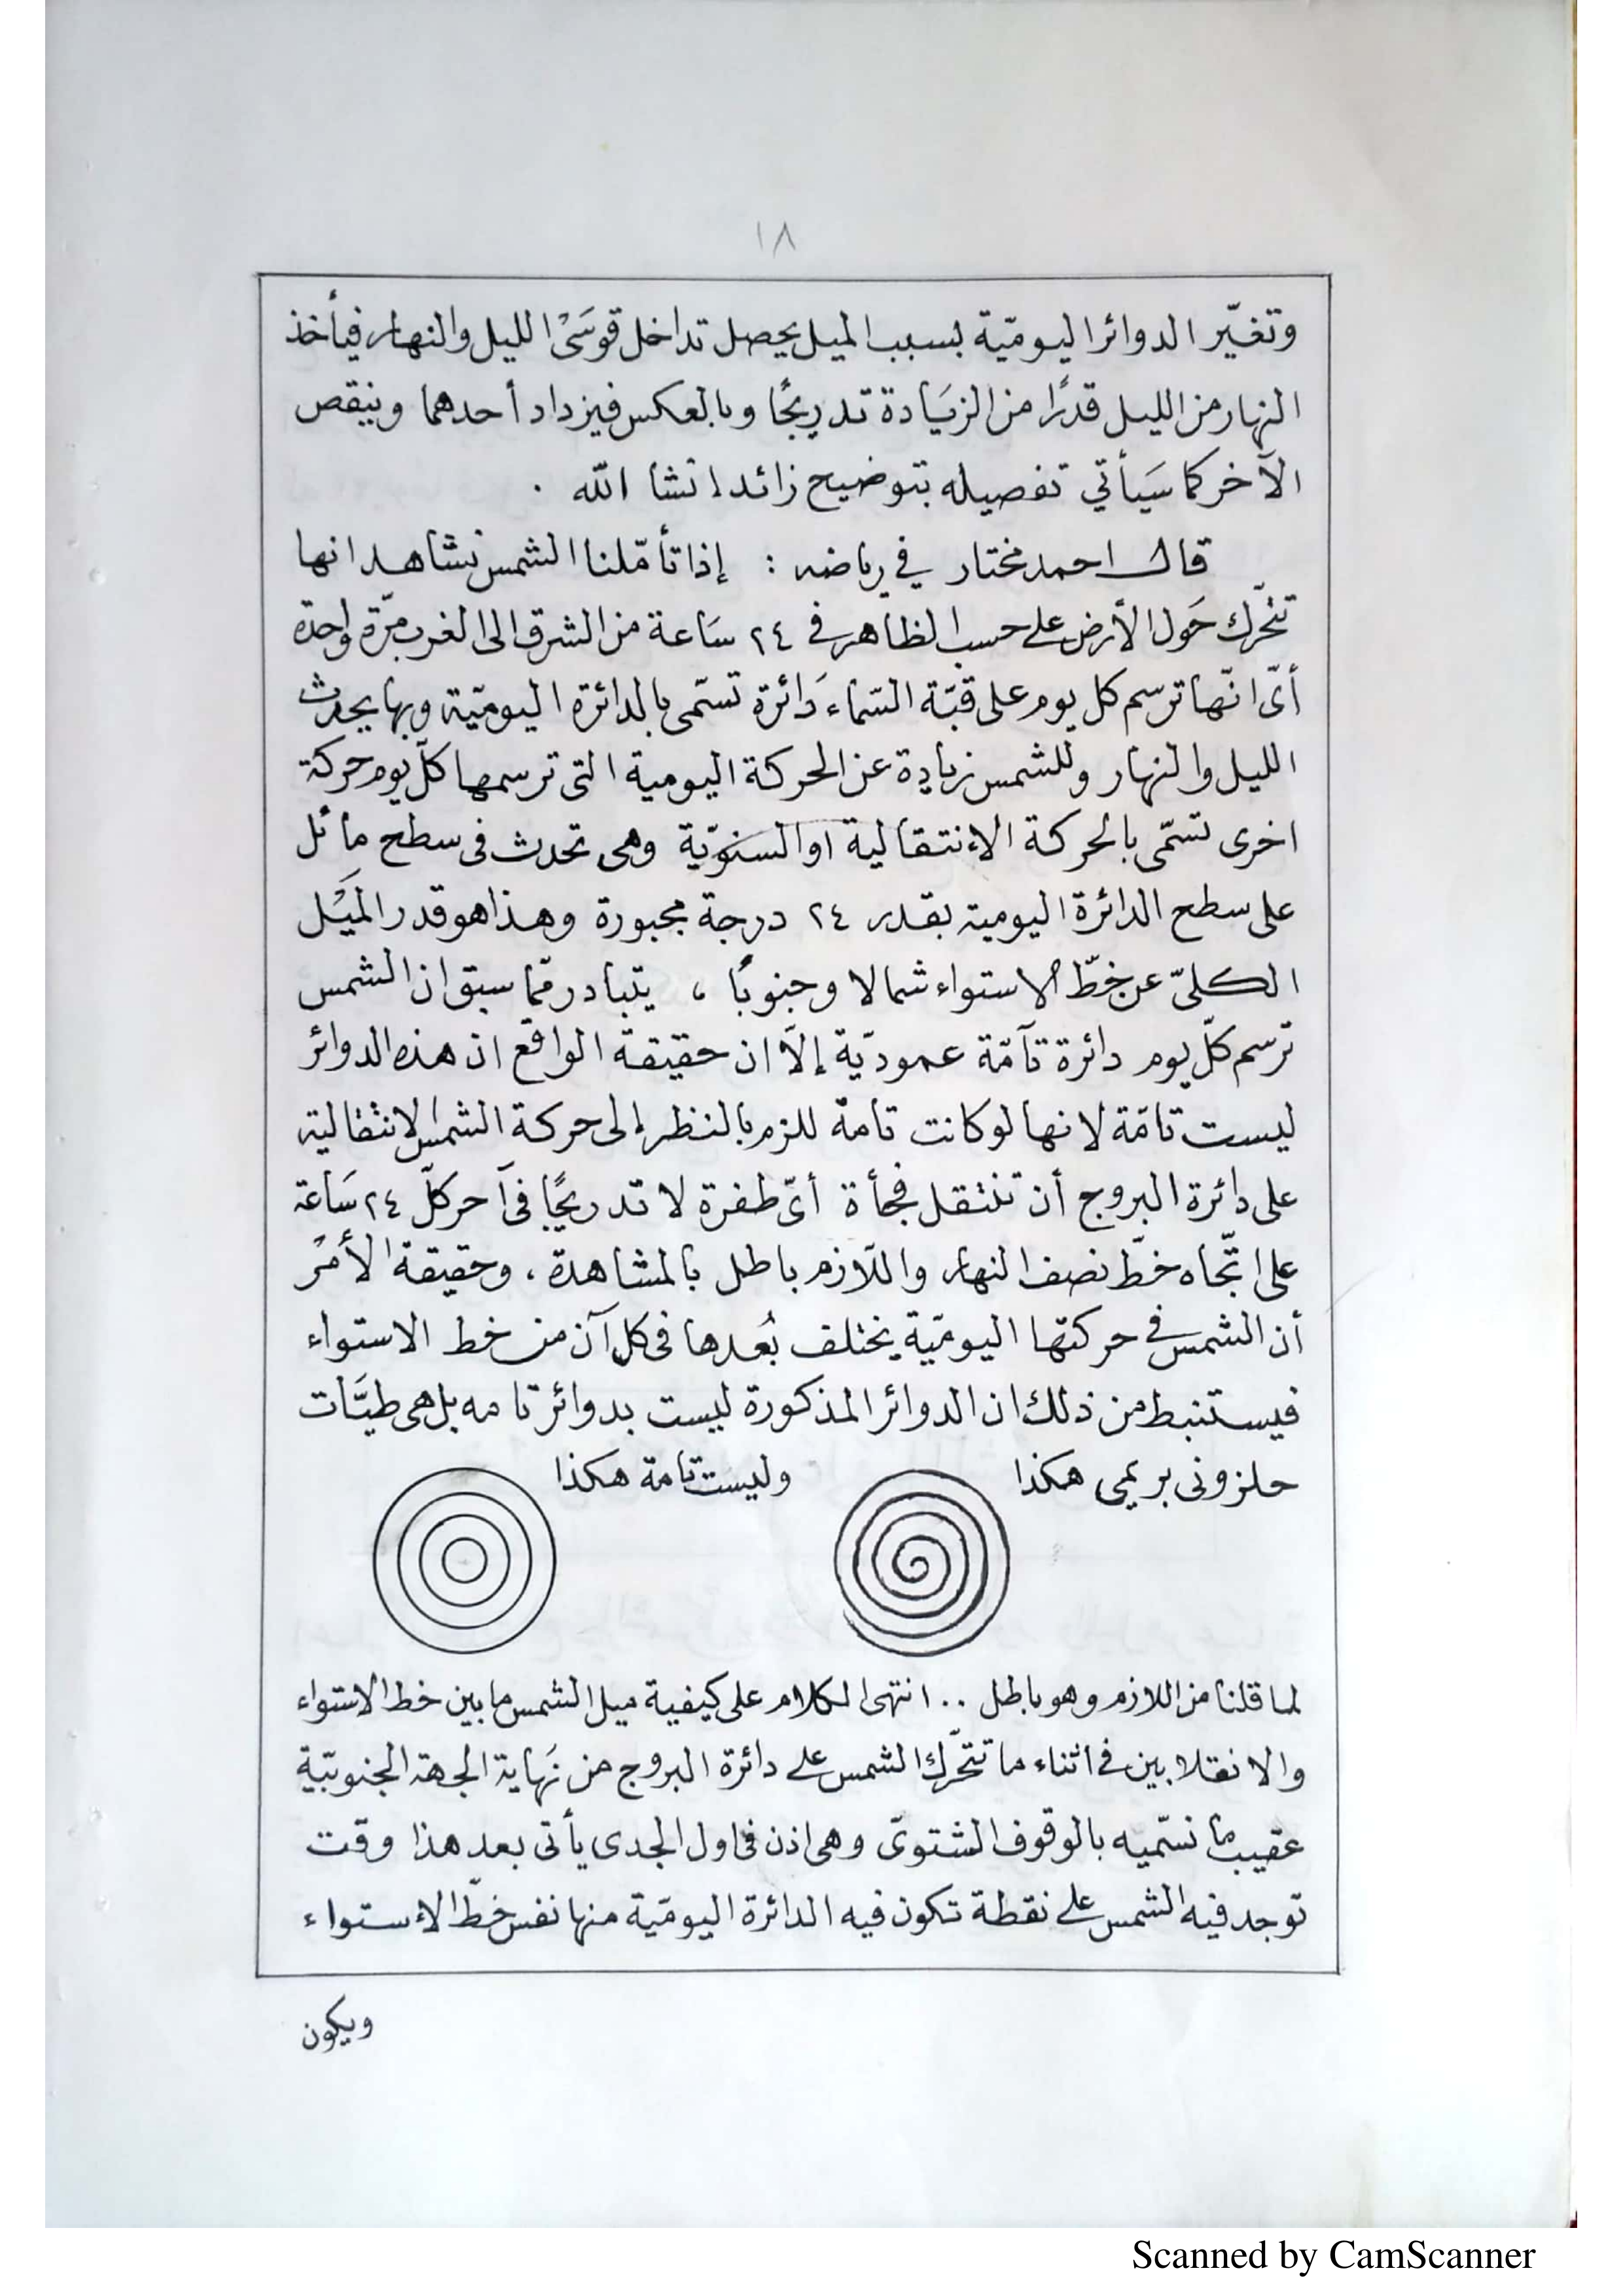 ١٨
وتغيّر الدوائر اليوميّة بسبب الميل يحصل تداخل قوسَيْ الليل والنهار فيأخذ
النهار من الليل قدرًا من الزيَادة تدريجًا وبالعكس فيزداد أحدهما وينقص
الآخر كما سَيأتي تفصيله بتوضيح زائد انشا الله .
قال احمد مختار في رياضه : إذا تأمّلنا الشمس نشاهد انها
تتحّرك حَول الأرض على حسب الظاهر في ٢٤ سَاعة من الشرق الى الغرب مرّة واحدة
أىّ انّها ترسم كل يوم على قبّة السّماء دَائرة تسمّى بالدائرة اليوميّة وبها يحدث
الليل والنهار وللشمس زيادة عن الحركة اليومية التى ترسمها كلّ يوم حركة
اخرى تسمّى بالحركة الانتقالية او السنويّة وهى تحدث فى سطح مائل
على سطح الدائرة اليومية بقدر ٢٤ درجة مجبورة وهذا هو قدر المَيْل
الكلىّ عن خطّ الاستواء شمالا وجنوبًا ، يتبادر ممّا سبق ان الشمس
ترسم كلّ يوم دائرة تآمّة عموديّة إلاّ ان حقيقة الواقع ان هذه الدوائر
ليست تامّة لانها لو كانت تامة للزم بالنظر إلى حركة الشمس الانتقالية
على دائرة البروج أن تنتقل فجأة أىّ طفرة لا تدريجًا فى آخر كلّ ٢٤ سَاعة
على اتّجاه خطّ نصف النهار واللّازم باطل بالمشاهدة ، وحقيقة الأمْر
أن الشمس في حركتها اليوميّة يختلف بُعدها فى كل آن من خط الاستواء
فيستنبط من ذلك ان الدوائر المذكورة ليست بدوائر تامه بل هى طيّات
حلزونى بريمى هكذا وليست تامة هكذا
لما قلنا من اللازم وهو باطل .. انتهى الكلام على كيفية ميل الشمس ما بين خط الاستواء
والانقلابين في اثناء ما تتحّرك الشمس على دائرة البروج من نَهاية الجهة الجنوبيّة
عقيب ما نسّميه بالوقوف الشتوىّ وهى اذن فى اول الجدى يأتى بعد هذا وقت
توجد فيه الشمس على نقطة تكون فيه الدائرة اليوميّة منها نفس خطّ الاستواء
ويكون
Scanned by CamScanner